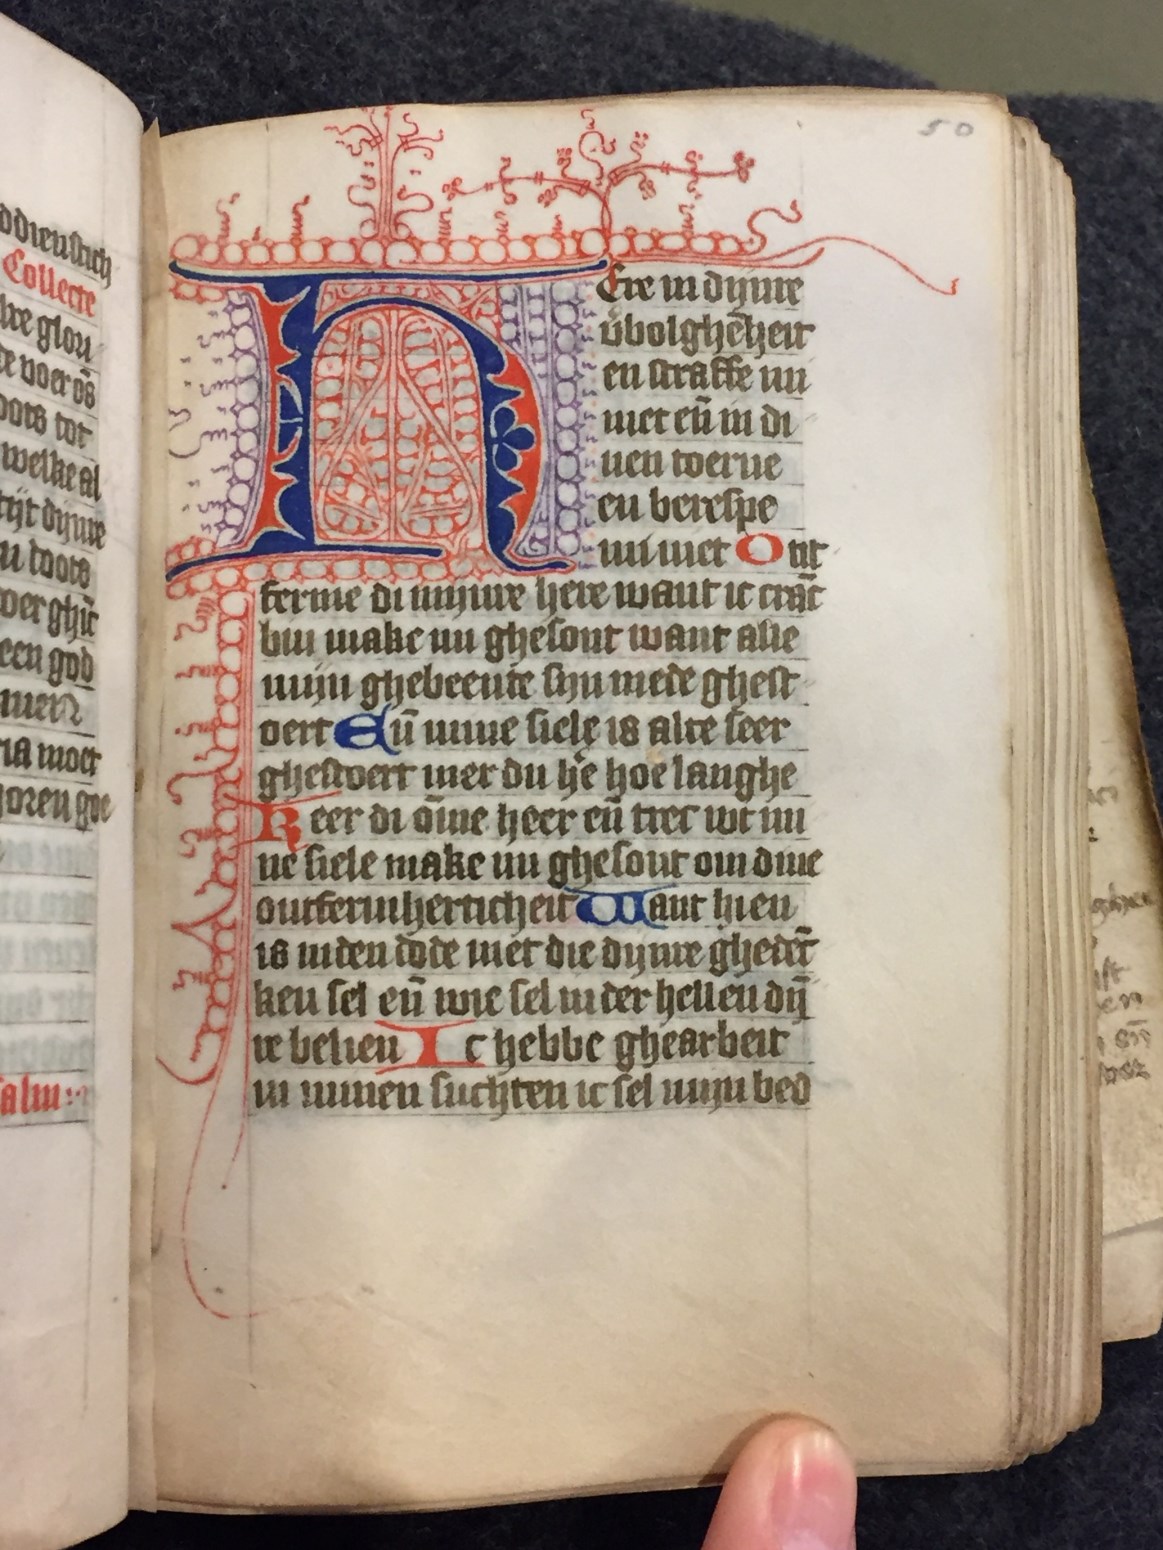 ddienstich
Collecte
te voer o̅s
doots tot
welke al
tijt dynre
n doots
over ghi̅t
een god
men
ria moet
alm:
50
Here in dynre
v̅bolghe̅heit
en straffe mi
niet en̅ in di
nen toerne
en berespe
mi niet Ont
ferme di mynre here want ic cra̅c
bin make mi ghesont want alle
mijn ghebeente sijn mede ghest
oert En̅ mine siele is alte seer
ghestoert mer du he̅ hoe langhe
Keer di o̅me heer en̅ trec wt mi
ne siele make mi ghesont om dine
ontfermherticheit Want hien
is inden dode niet die dynre ghede̅c
ken sel en̅ wie sel in der hellen dy̅
re belien Ic hebbe ghearbeit
in minen suchten ic sel mijn bed